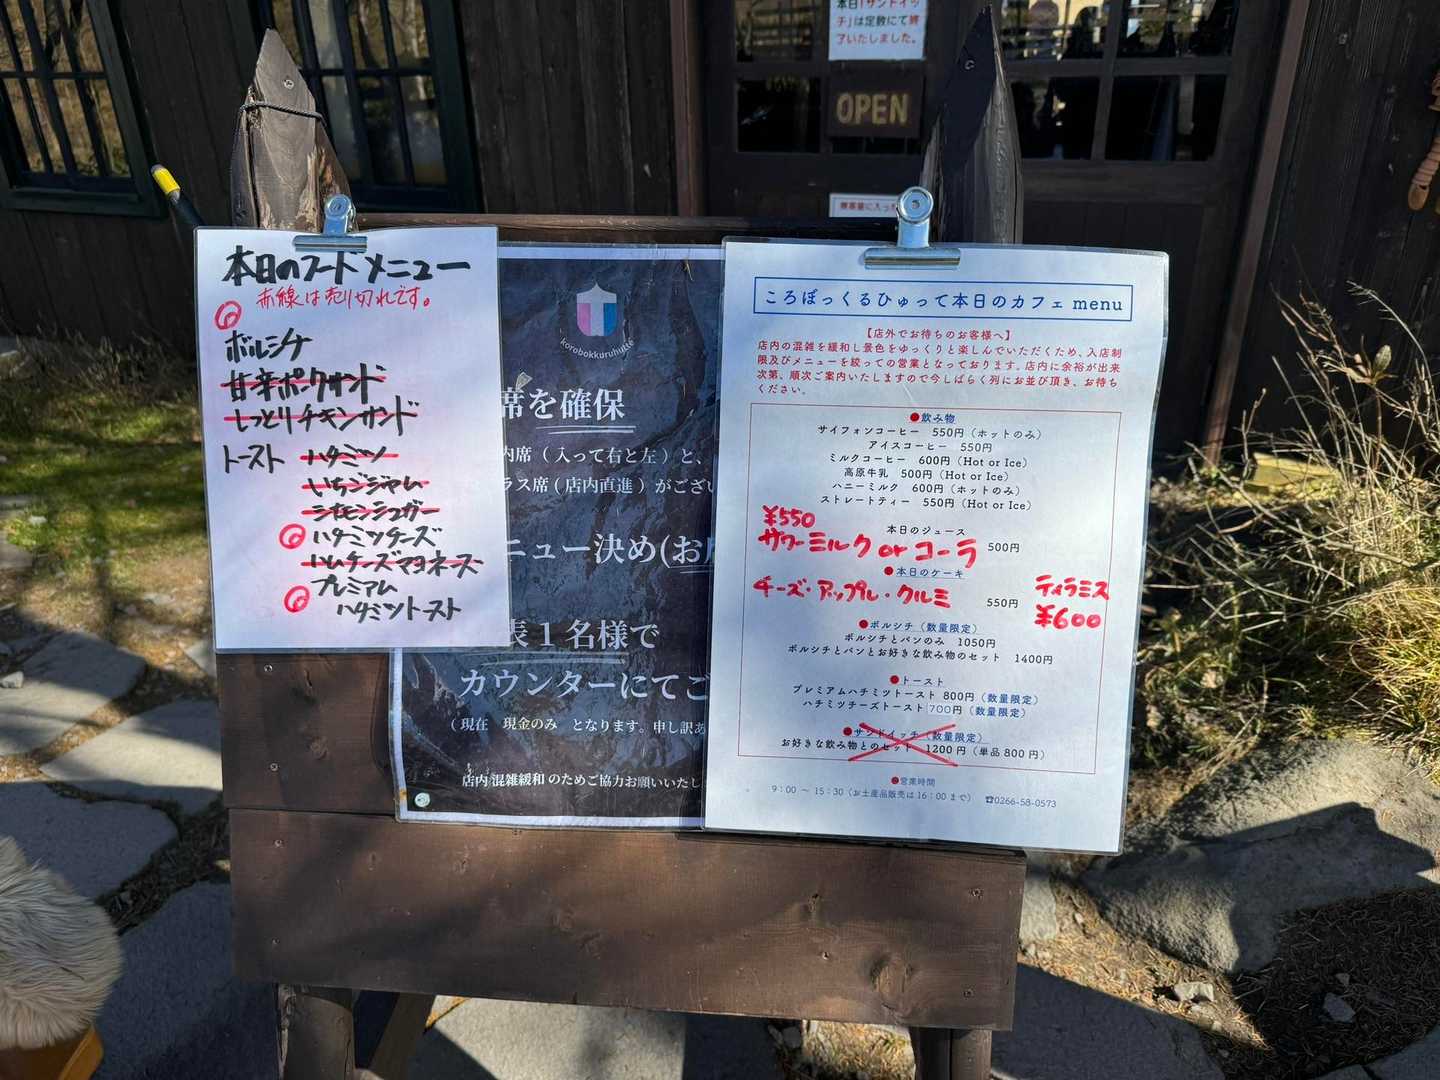 本日「サンドイッ
チ」は定数にて終
了いたしました。
OPEN
本日のフードメニュー
赤線は売り切れです。
ボルシチ
甘辛ポークサンド
しっとりチキンサンド
トースト ハチミツ
いちごジャム
シナモンシュガー
ハチミツチーズ
ハムチーズマヨネーズ
プレミアム
ハチミツトースト
korobokkuruhutte
席を確保
内席（入って右と左）と、
ラス席（店内直進）がござい
ニュー決め(お
表１名様で
カウンターにてご
（現在 現金のみ となります。申し訳あ
店内混雑緩和のためご協力お願いいたし
ころぼっくるひゅって本日のカフェ menu
【店外でお待ちのお客様へ】
店内の混雑を緩和し景色をゆっくりと楽しんでいただくため、入店制
限及びメニューを絞っての営業となっております。店内に余裕が出来
次第、順次ご案内いたしますので今しばらく列にお並び頂き、お待ち
ください。
●飲み物
サイフォンコーヒー 550円（ホットのみ）
アイスコーヒー 550円
ミルクコーヒー 600円（Hot or Ice）
高原牛乳 500円（Hot or Ice）
ハニーミルク 600円（ホットのみ）
ストレートティー 550円（Hot or Ice）
¥550
本日のジュース
サワーミルク or コーラ 500円
●本日のケーキ
チーズ・アップル・クルミ 550円
ティラミス
¥600
●ボルシチ（数量限定）
ボルシチとパンのみ 1050円
ボルシチとパンとお好きな飲み物のセット 1400円
●トースト
プレミアムハチミツトースト 800円（数量限定）
ハチミツチーズトースト 700円（数量限定）
●サンドイッチ（数量限定）
お好きな飲み物とのセット 1200円（単品800円）
●営業時間
9：00 ～ 15：30（お土産品販売は16：00まで） ☎0266-58-0573